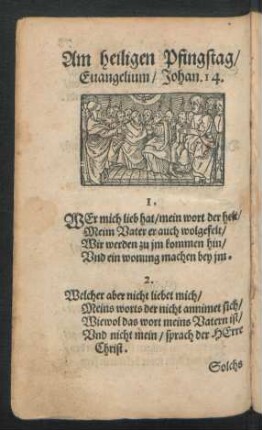 Am heiligen Pfingstag/
Euangelium/ Johan. 14.
1.
WEr mich lieb hat/mein wort der helt/
Meim Vater er auch wolgefelt/
Wir werden zu jm kommen hin/
Vnd ein wonung machen bey jm.
2.
Welcher aber nicht liebet mich/
Meins worts der nicht annimet sich/
Wiewol das wort meins Vatern ist/
Vnd nicht mein/ sprach der HErre
Christ.
Solchs